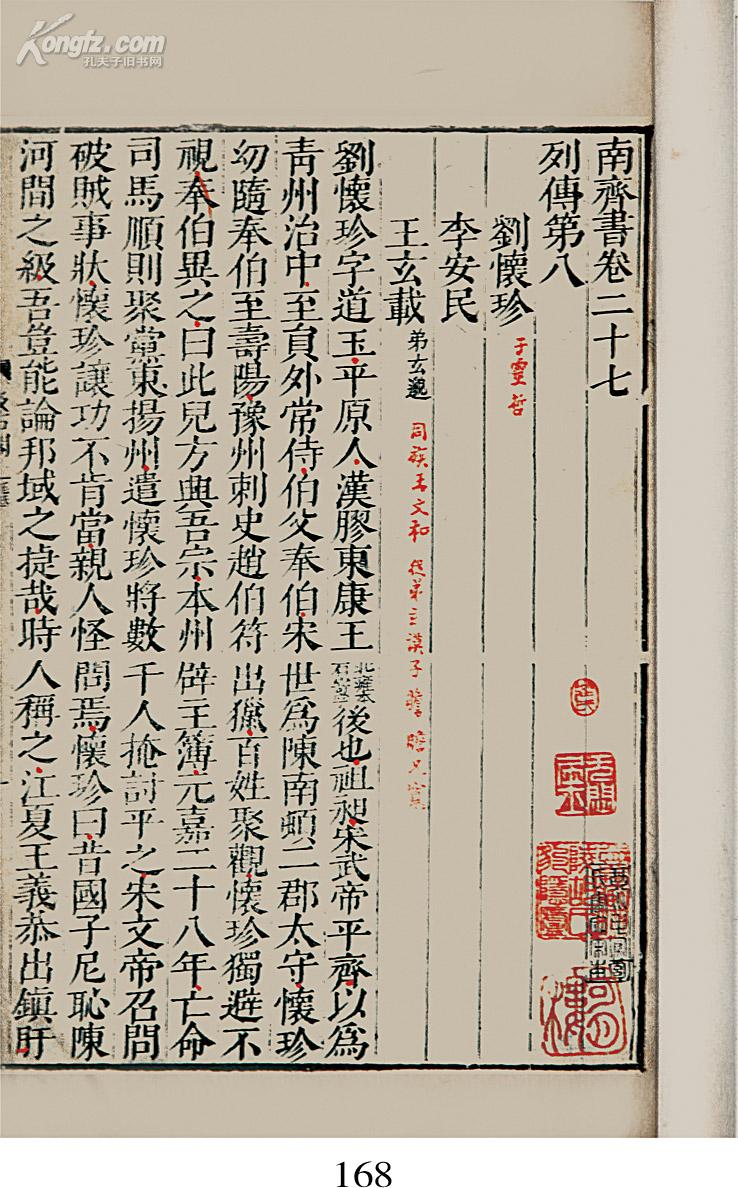 Kongfz.com
孔夫子旧书网
南齊書卷二十七
列傳第八
劉懷珍 子靈哲
李安民
王玄載 弟玄邈 同族王文和 從弟玄謨子瞻 瞻兄寬
劉懷珍字道玉平原人漢膠東康王 北雍本 後也祖昶宋武帝平齊以為
青州治中至員外常侍伯父奉伯宋世爲陳南頓二郡太守懷珍
幼隨奉伯至壽陽豫州刺史趙伯符出獵百姓聚觀懷珍獨避不
視奉伯異之曰此兒方興吾宗本州辟主簿元嘉二十八年亡命
司馬順則聚黨東揚州遣懷珍將數千人掩討平之宋文帝召問
破賊事狀懷珍讓功不肯當親人怪問焉懷珍曰昔國子尼恥陳
河間之級吾豈能論邦域之捷哉時人稱之江夏王義恭出鎮盱
168